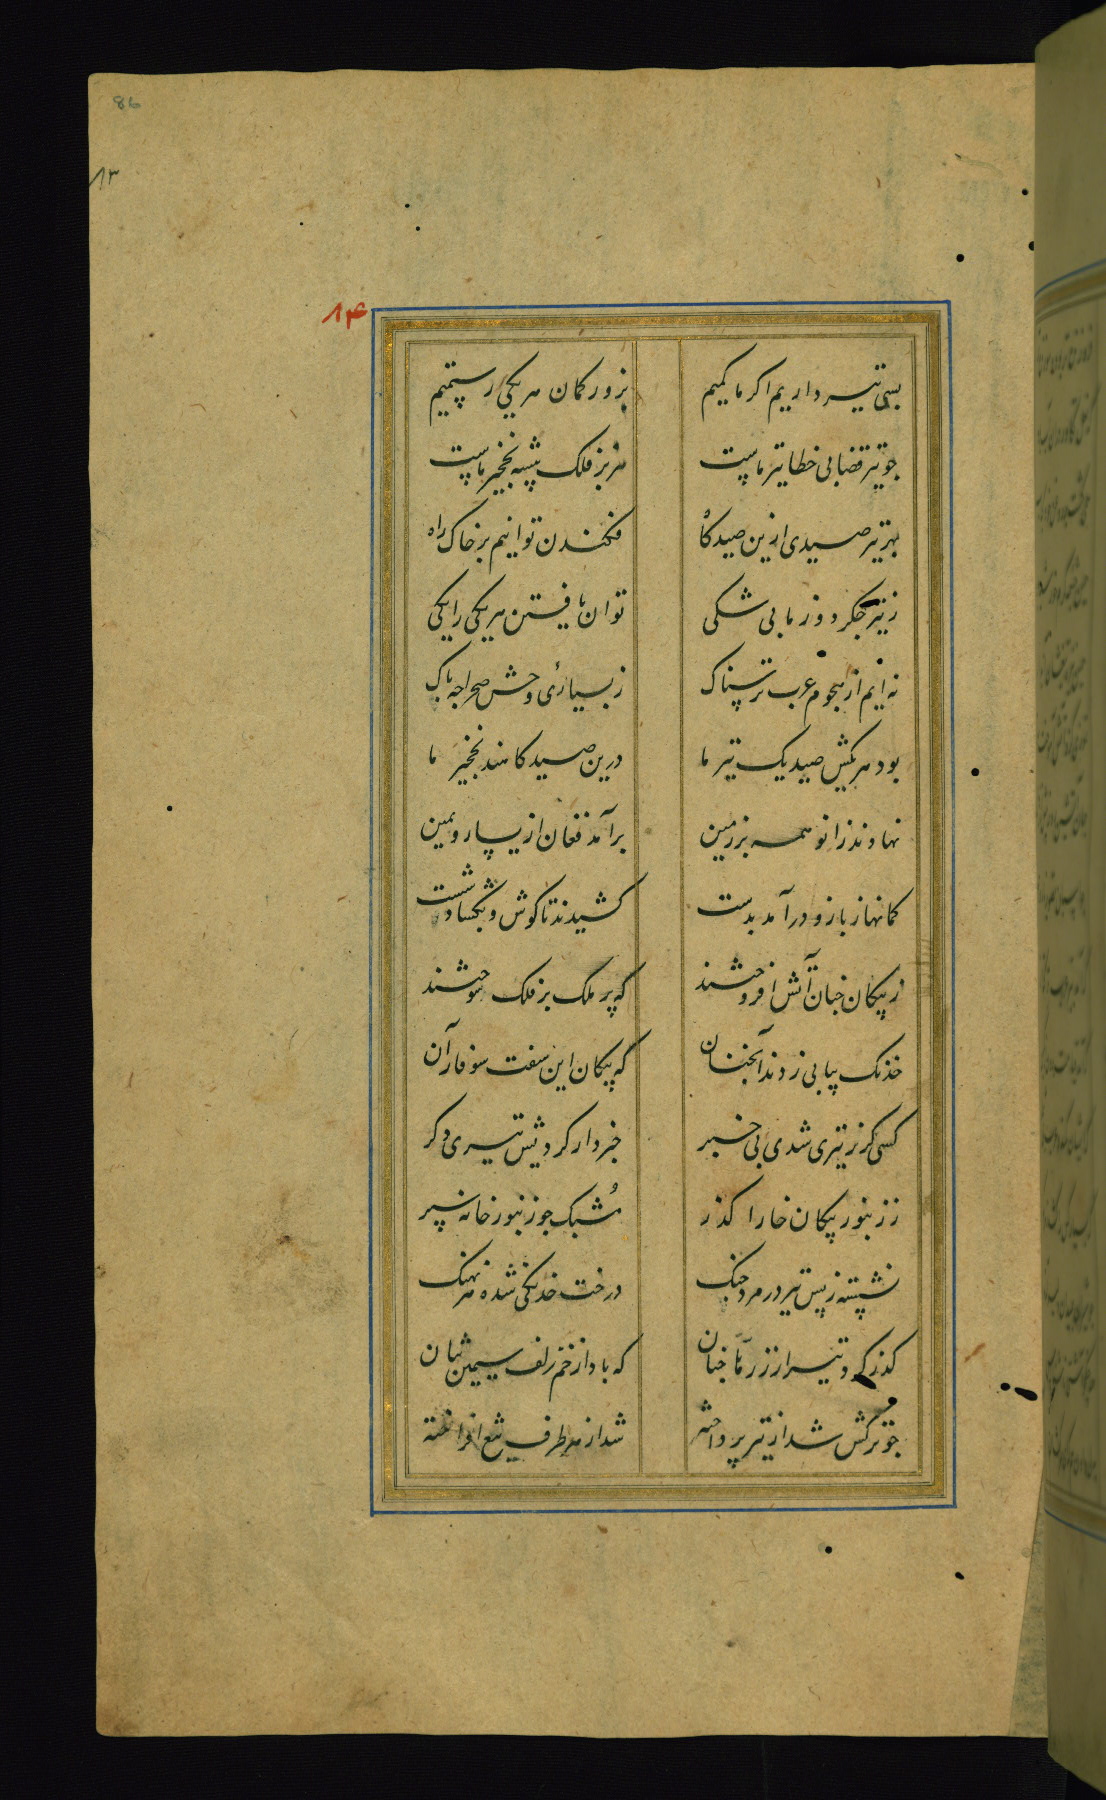 86
۸۳
۸۴
بسی تیر داریم اکر ما کمیم بزور کمان هر یکی رستمیم
جو تیر قضا بی خطا تیر ماست هزبر فلک پشه نخجیر ماست
بهر تیر صیدی ازین صیدکاه فکندن توانیم بر خاک راه
ز تیر جکردوز ما بی شکی توان یافتن هر یکی را یکی
نه ایم از هجوم عرب ترسناک ز بسیارئ وحش صحرا جه باک
بود هر یکش صید یک تیر ما درین صیدکاهند نخجیر ما
نهادند زانو همه بر زمین برآمد فغان از یسار و یمین
کمانها ز بازو درآمد بدست کشیدند تا کوش و بکشاد شست
ز پیکان جنان آتش افروختند که پر ملک بر فلک سوختند
خدنک پیابی زدند آنجنان که پیکان این سفت سوفار آن
کسی کز تیری شدی بی خبر خبردار کردیش تیری دکر
ز زنبور پیکان خارا کذر مشبک جو زنبور خانه سپر
نشسته ز بس تیر در مرد جنک درخت خدنکی شده هر نهنک
کذر کرد تیر از زرها جنان که باد از خم زلف سیمین تنان
جو ترکش شد از تیر پرداخته شد از هر طرف تیغ افراخته